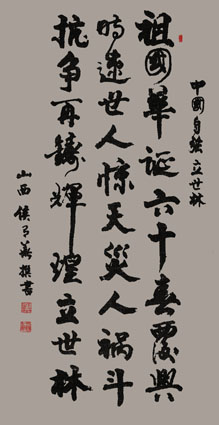 中國自強立世林
祖國華诞六十春覆興
時速世人惊天災人祸斗
抗争再鑄輝煌立世林
山西 侯 撰書